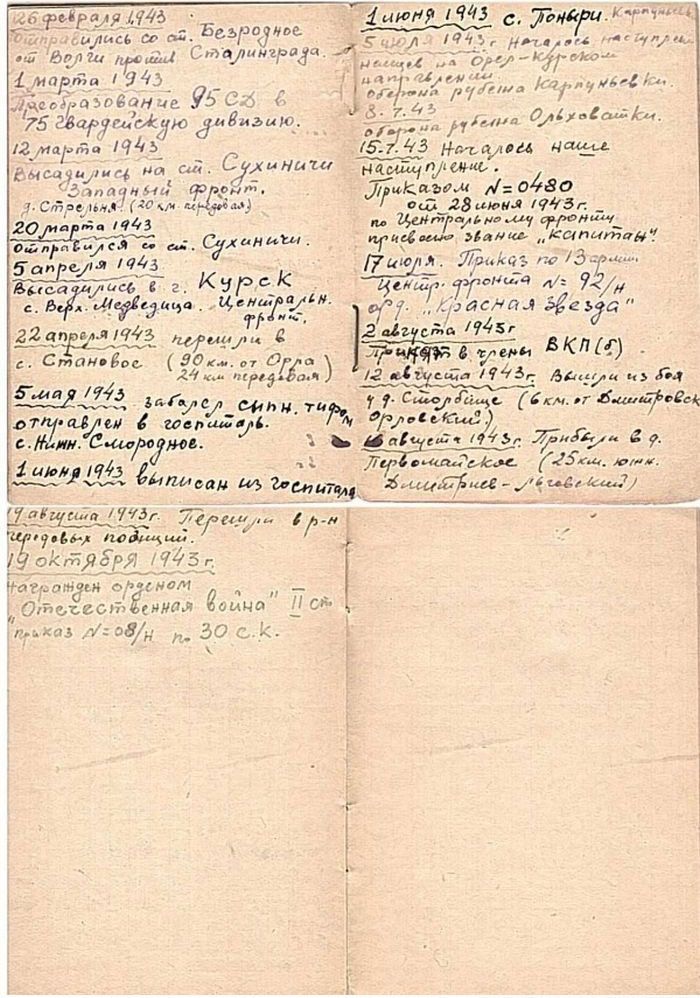 26 февраля 1943
отправились со ст. Безродное
от Волги против Сталинграда.
1 марта 1943
Преобразование 95 СД в
75 гвардейскую дивизию.
12 марта 1943
Высадились на ст. Сухиничи
Западный фронт.
д. Стрельня. (20 км. передовая)
20 марта 1943
отправился со ст. Сухиничи.
5 апреля 1943
Высадились в г. Курск
с. Верх. Медведица. Центральн.
фронт.
22 апреля 1943 перешли в
с. Становое (90 км. от Орла
24 км передовая)
5 мая 1943 заболел сыпн. тифом
отправлен в госпиталь.
с. Нижн. Смородное.
1 июня 1943 выписан из госпиталя
1 июня 1943 с. Поныри.
5 июля 1943 г. Началось наступлен
немцев на Орел-Курском
направлении
оборона рубежа Карпуньевки.
8.7.43
оборона рубежа Ольховатки.
15.7.43 Началось наше
наступление.
Приказом N=0480
от 28 июня 1943 г.
по Центральному фронту
присвоено звание „Капитан".
17 июля. Приказ по 13 армии
Центр. фронта N= 92/н
орд. „Красная звезда"
2 августа 1943 г
в члены ВКП(б)
12 августа 1943 г. Вышли из боя
у д. Столбище (6 км. от Дмитровск
Орловский.)
августа 1943 г. Прибыли в д.
Первомайское (25 км. южн.
Дмитриев-Льговский)
августа 1943 г. Перешли в р-н
передовых позиций.
19 октября 1943 г.
Награжден орденом
"Отечественная война" II ст
приказ N=08/н по 30 с.к.